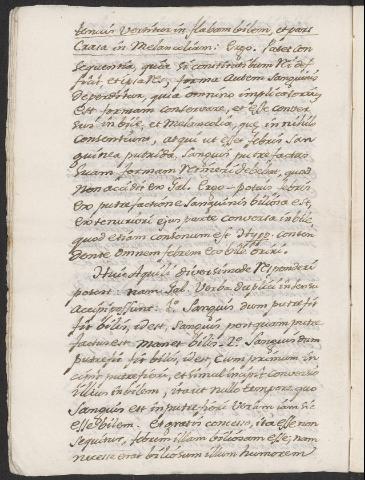 tenuis vertitur in flavam bilem, et pars
Crasa in Melancoliam: Ergo. Patet con
sequentia, quia si constitutibum Rei des
truit, et ipsa Res; forma autem Sanguinis
deperditur, quia omnino implicatorium
est formam conservare, et esse conver
sum in bile, et Melancolia, que in nihilo
Conveniunt, atqui ut esset febris San
guinea putrida, Sanguis putrefactus
suam formam retinere debebat, quod
Non accidit ex Gal. Ergo potius febris
ex putrefactione Sanguinis biliosa est,
ex tenuiori ejus parte conversa in bile
quod etiam consonum est Hypp. conten
dente omnem febrem ex bile oriri.
Huic Aquila diversimode Responderi
potest: nam Gal. Verba duplici in sensu
accipi possunt. 1º Sanguis dum putrefit
fit bilis, id est, Sanguis postquam putre
factus est manet bilis. 2º Sanguis dum
putrefit fit bilis, id est, Cum primum in
cipit putrefieri, et simul incipit conversio
illius in bilem, ita ut nullo tempore quo
Sanguis est in putrefieri verum sit
esse bilem. Et gratis concesso, ita esse non
sequitur, febrem illam biliosam esse; nam
necesse erat biliosum illum humorem